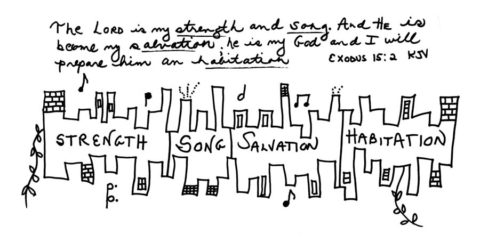 The LORD is my strength and song. And He is
become my salvation; he is my God and I will
prepare him an habitation EXODUS 15:2 KJV
STRENGTH SONG SALVATION HABITATION